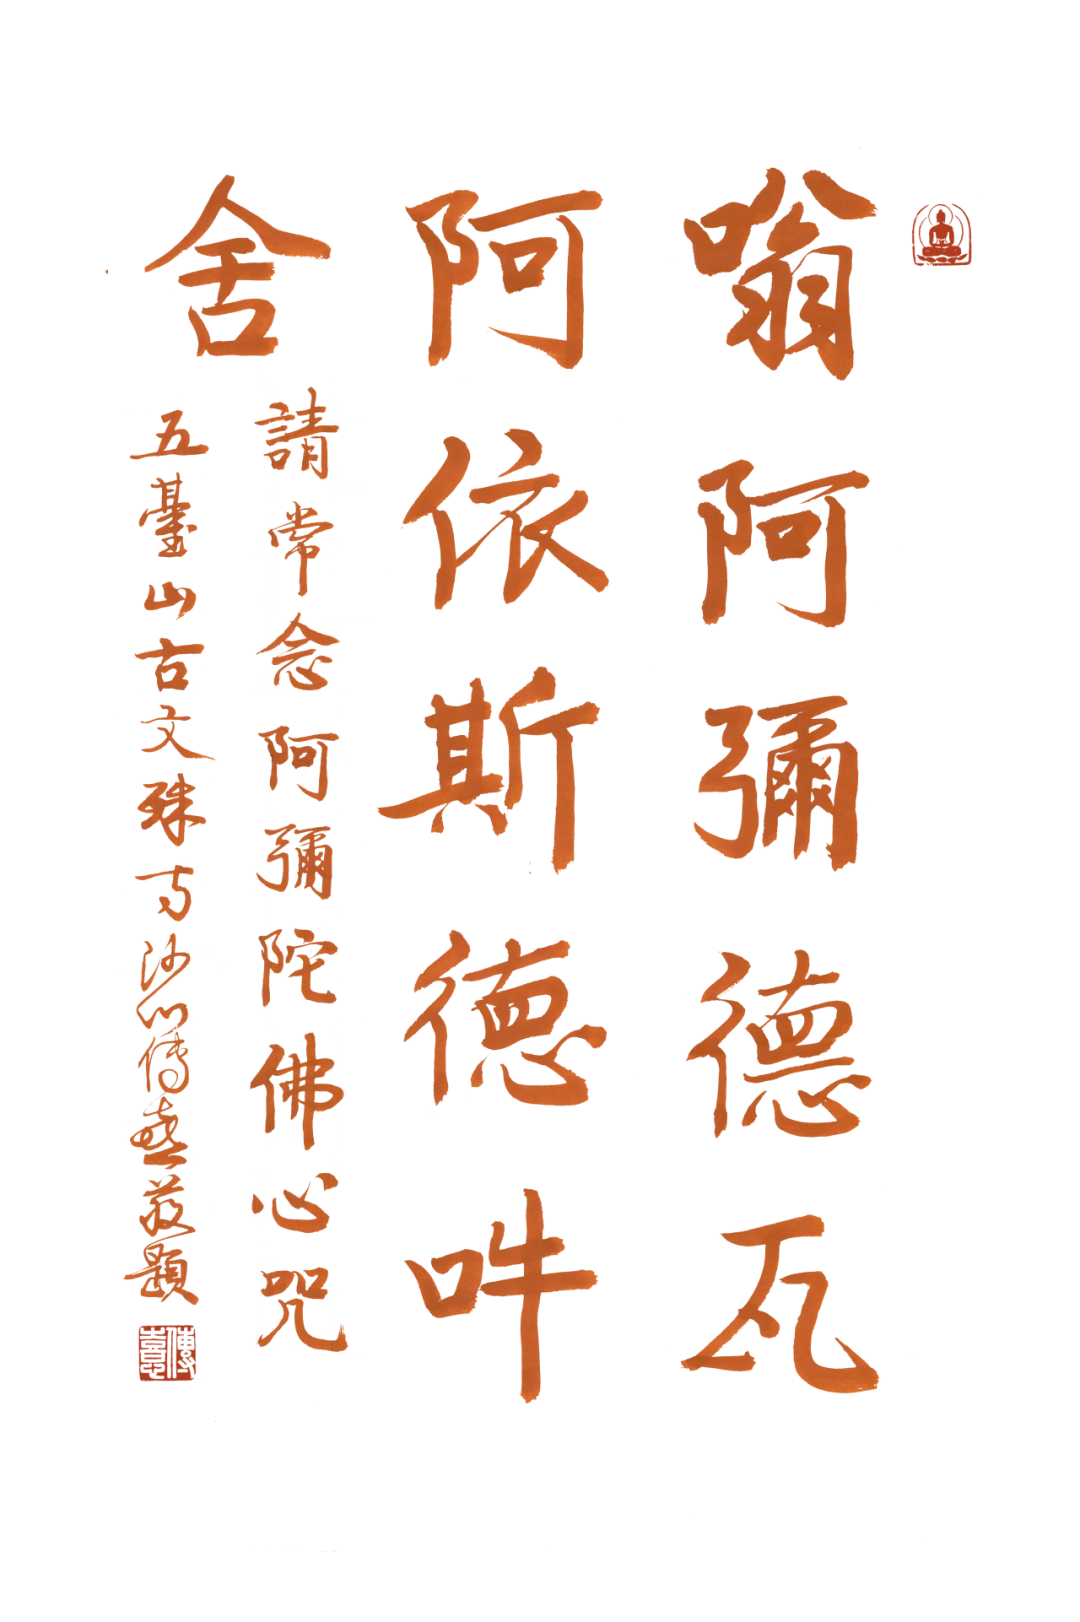 嗡阿彌德瓦
阿依斯德吽
舍
請常念阿彌陀佛心咒
五臺山古文殊寺沙門傳喜敬題
傳喜